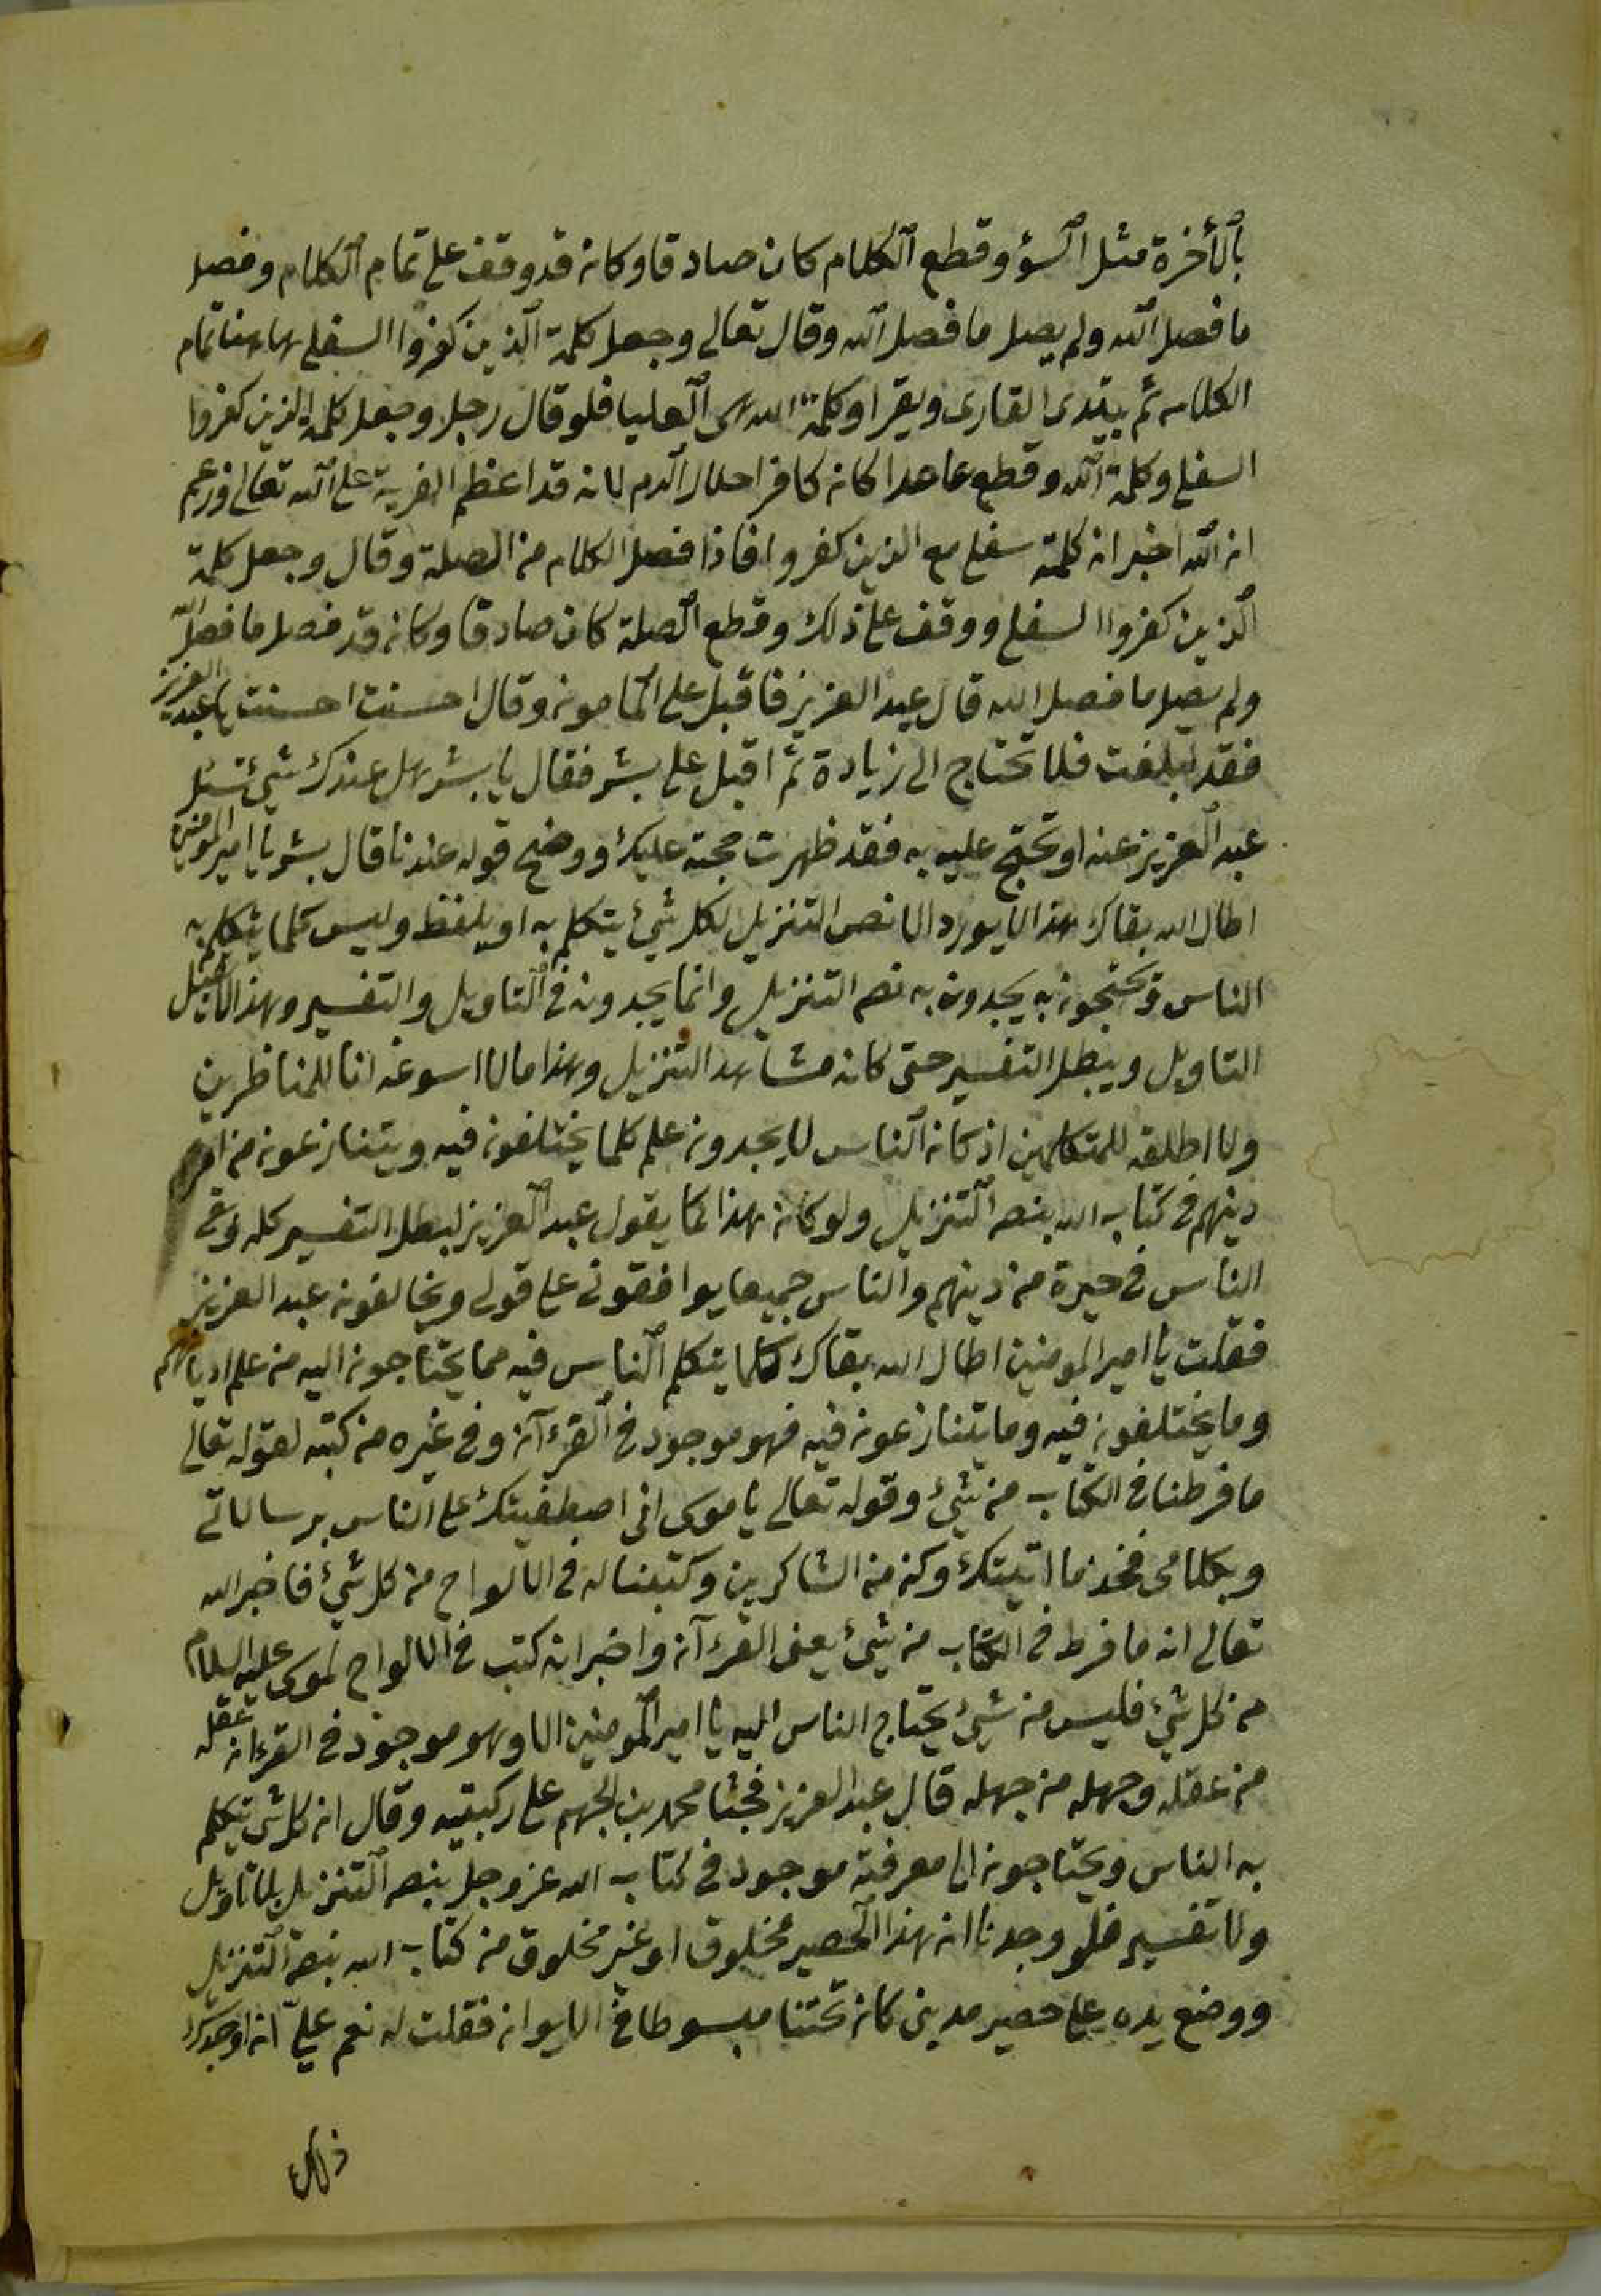 بالأخرة مثل السؤ وقطع الكلام كان صادقا وكانه قد وقف على تمام الكلام وفصل
ما فصل الله ولم يصل ما فصل الله وقال تعالى وجعل كلمة الذين كفروا السفلى هاهنا تمام
الكلام ثم يبتدى القارى ويقرا وكلمة الله هى العليا فلو قال رجل وجعل كلمة الذين كفروا
السفلى وكلمة الله وقطع عامدا كان كافرا حلال الدم لانه قد اعظم الفرية على الله تعالى وزعم
ان الله اخبر ان كلمته سفلى مع الذين كفروا فاذا فصل الكلام من الصلة وقال وجعل كلمة
الذين كفروا السفلى ووقف على ذلك وقطع الصلة كان صادقا وكان قد فصل ما فصل الله
ولم يصل ما فصل الله قال عبد العزيز فاقبل على المامون وقال احسنت احسنت يا عبد العزيز
فقد ابلغت فلا تحتاج الى زيادة ثم اقبل على بشر فقال يا بشر هل عندك شئ تسئل
عبد العزيز عنه او تحتج عليه به فقد ظهرت حجته عليك ووضح قوله عندنا قال بشر يا امير المومنين
اطال الله بقاك هذا لا يورد الا نص التنزيل لكل شئ يتكلم به او يلفظ وليس كلما يتكلم به
الناس ويحتجون به يجدون به نص التنزيل وانما يجدونه فى التاويل والتفسير وهذا لا يقبل
التاويل ويبطل التفسير حتى كانه مشاهد التنزيل وهذا ما لا اسوغه انا للمناظرين
ولا اطلقه للمتكلمين اذ كان الناس لا يجدون علم كلما يختلفون فيه ويتنازعون من امر
دينهم فى كتاب الله بنص التنزيل ولو كان هذا كما يقول عبد العزيز لبطل التفسير كله وبقى
الناس فى حيرة من دينهم والناس جميعا يوافقونى على قولى ويخالفون عبد العزيز
فقلت يا امير المومنين اطال الله بقاك كلما يتكلم الناس فيه مما يحتاجون اليه من علم اديانهم
وما يختلفون فيه وما يتنازعون فيه فهو موجود فى القرءآن وفى غيره من كتبه لقوله تعالى
ما فرطنا فى الكتاب من شئ وقوله تعالى يا موسى انى اصطفيتك على الناس برسالاتى
وبكلامى فخذ ما اتيتك وكن من الشاكرين وكتبنا له فى الالواح من كل شئ فاخبر الله
تعالى انه ما فرط فى الكتاب من شئ يعنى القرءآن واخبر انه كتب فى الالواح لموسى عليه السلام
من كل شئ فليس من شئ يحتاج الناس اليه يا امير المومنين الا وهو موجود فى القرءان عقله
من عقله وجهله من جهله قال عبد العزيز فجثا محمد بن الجهم على ركبتيه وقال ان كل شئ يتكلم
به الناس ويحتاجون الى معرفته موجود فى كتاب الله عز وجل بنص التنزيل بلا تاويل
ولا تفسير فلو وجدنا ان هذا الحصير مخلوق او غير مخلوق من كتاب الله بنص التنزيل
ووضع يده على حصير مدينى كان تحتنا مبسوطا فى الايوان فقلت له نعم علىّ ان اوجدك
ذلك